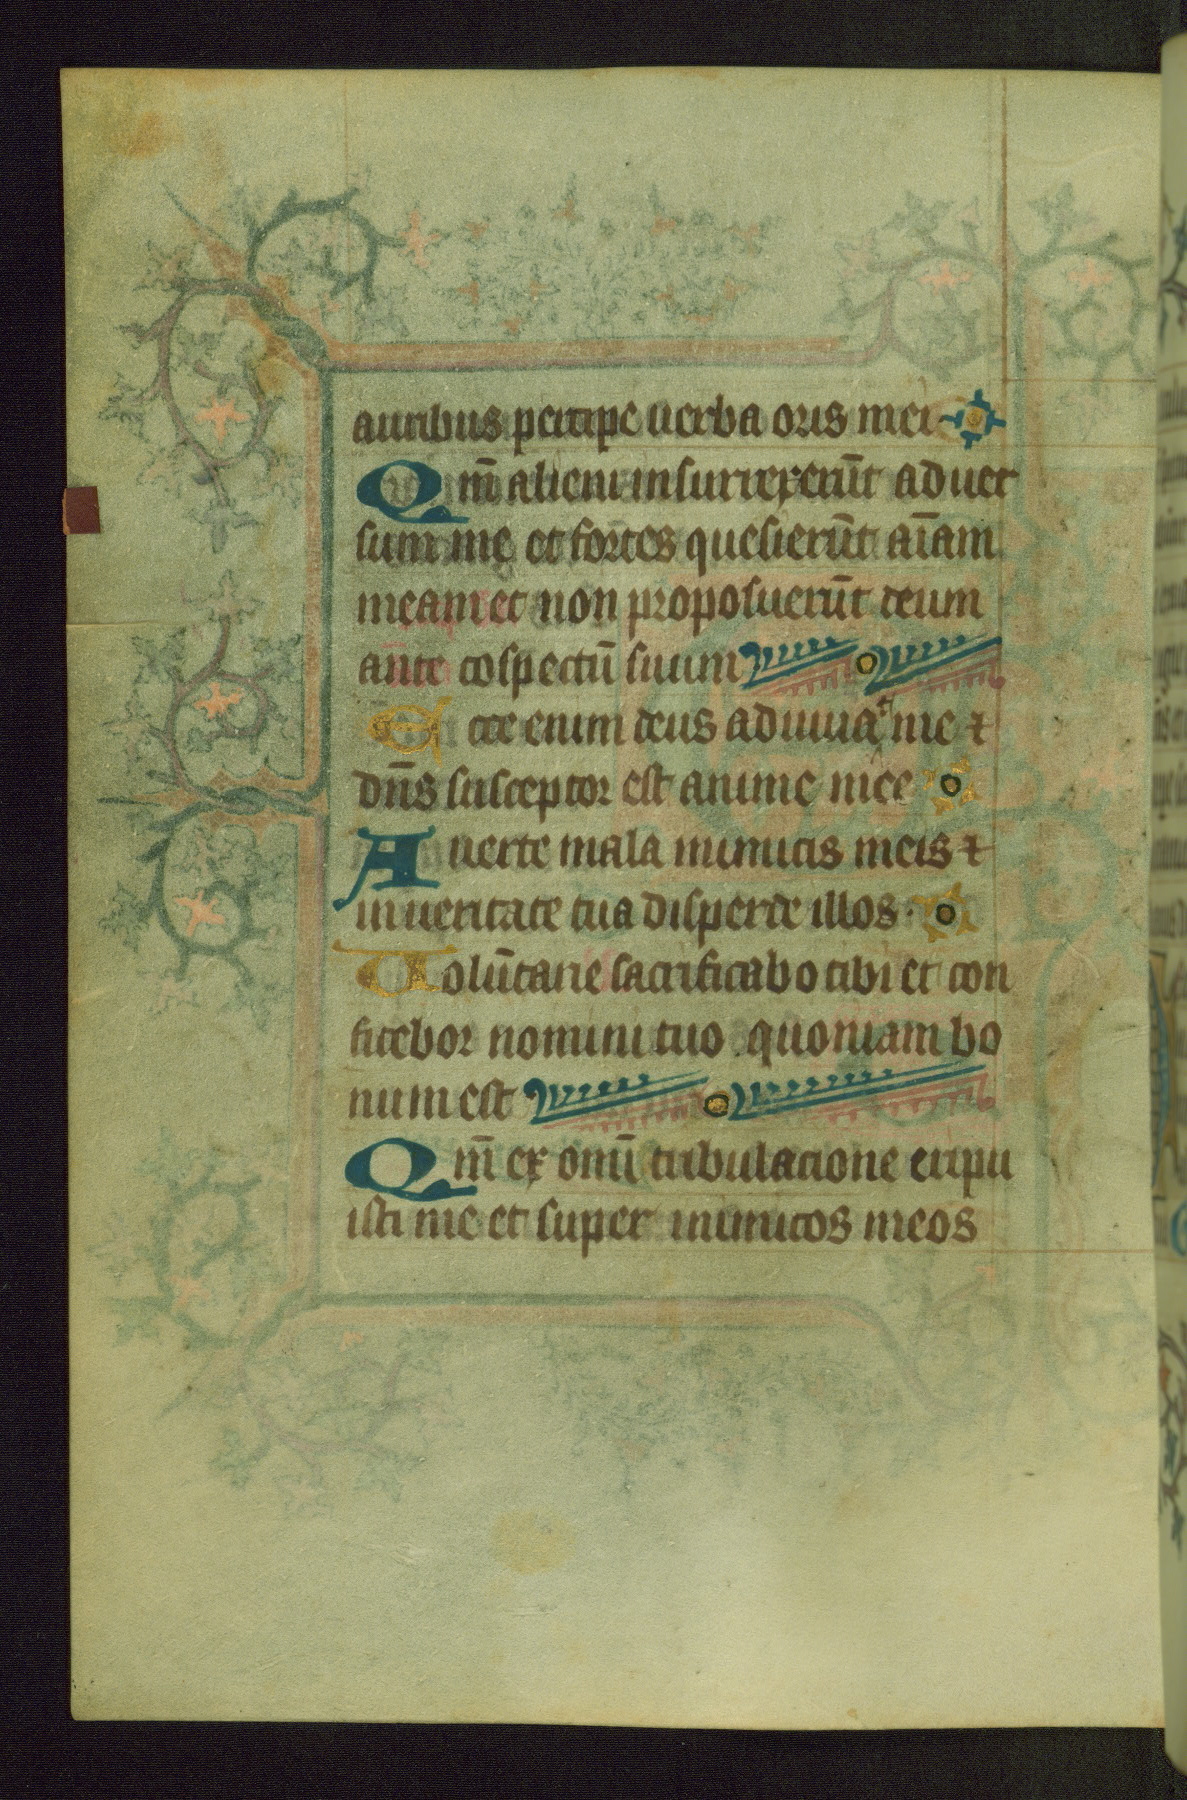 auribus percipe uerba oris mei
Qm̄ alieni insurrexerūt aduer
sum me et fortes quesierūt aīam
meam et non proposuerūt deum
ante cōspectū suum
Ecce enim deus adiuuat me ⁊
dn̄s susceptor est anime mee
Auerte mala inimicis meis ⁊
in ueritate tua disperde illos.
Volūtarie sacrificabo tibi et con
fitebor nomini tuo quoniam bo
num est
Qm̄ ex omī tribulatione eripu
isti me et super inimicos meos